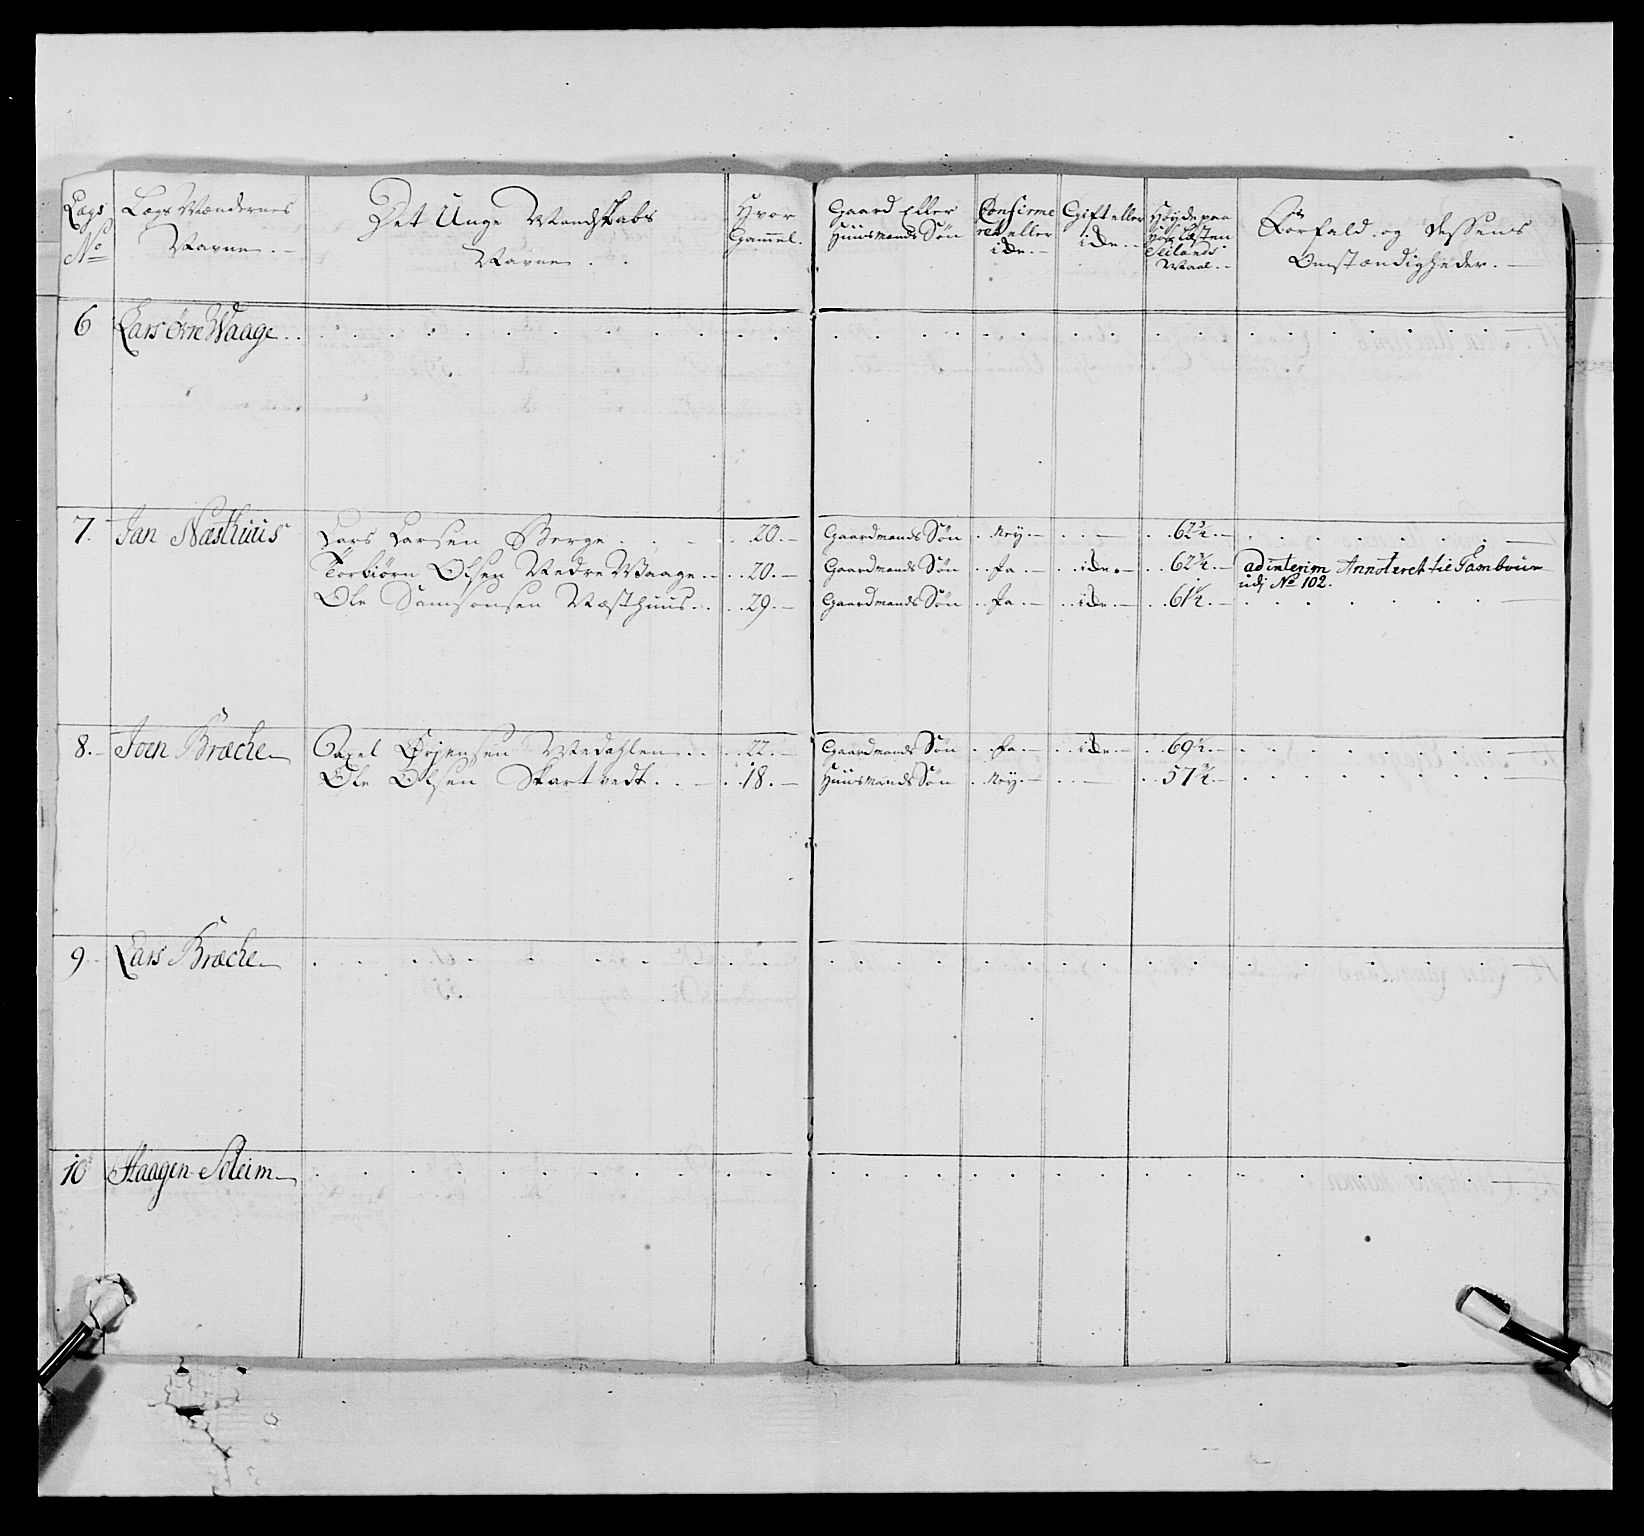 Lægs No
Lægs Mændernes Navne.
Det Unge Mandskabs Navne.
Hvor Gammel.
Gaard Eller Huusmands Søn
Confirmeret eller icke.
Gift eller icke.
Høyde paa
Sielands Maal.
Forfald og dessens Omstændigheder.
6 Lars Øvre Waage
7. Jan Næsthuus Lars Larsen Berge 20. Gaardmands Søn Ney 62¾
Torbiørn Olsen Nedre Waage 20. Gaardmands Søn Ja icke 62¾ ad interim Annoteret til Tambour
udj No 102.
Ole Samsonsen Næsthuus 29. Gaardmands Søn Ja icke 61½
8. Joen Bræche Ørjensen Medahlen 22. Gaardmands Søn Ja icke 69½
Ole Olsen Skartvedt 18. Huusmands Søn Ney 57¾
9. Lars Bræche
10 Haagen Seleim